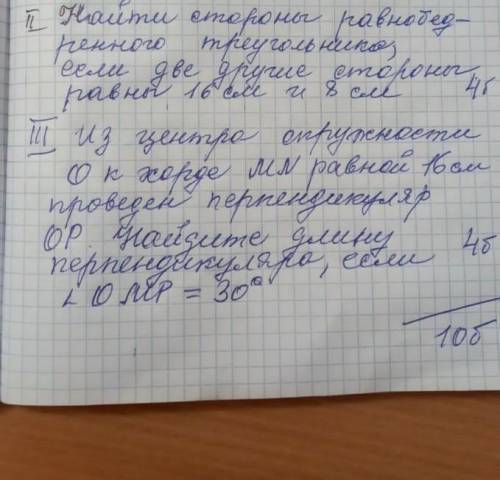 II Найти стороны равнобед-
ренного треугольника,
если две другие стороны
равны 16 см и 8 см 4б
III Из центра окружности
O к хорде MN равной 16 см
проведен перпендикуляр
OP. Найдите длину
перпендикуляра, если 4б
∠ OMP = 30°
10б